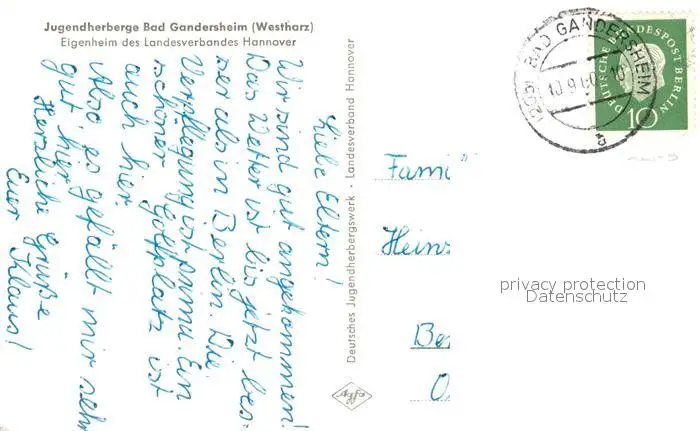 Jugendherberge Bad Gandersheim (Westharz)
Eigenheim des Landesverbandes Hannover
Liebe Eltern!
Wir sind gut angekommen!
Das Wetter ist bis jetzt bes-
ser als in Berlin. Die
Verpflegung ist prima. Ein
schöner Golfplatz ist
auch hier.
Also, es gefällt mir sehr
gut hier.
Herzliche Grüße
Euer Klaus!
Deutsches Jugendherbergswerk · Landesverband Hannover
Agfa
BAD GANDERSHEIM
10.9.60
a
DEUTSCHE BUNDESPOST BERLIN
10
Fami
Hein
Be
privacy protection
Datenschutz